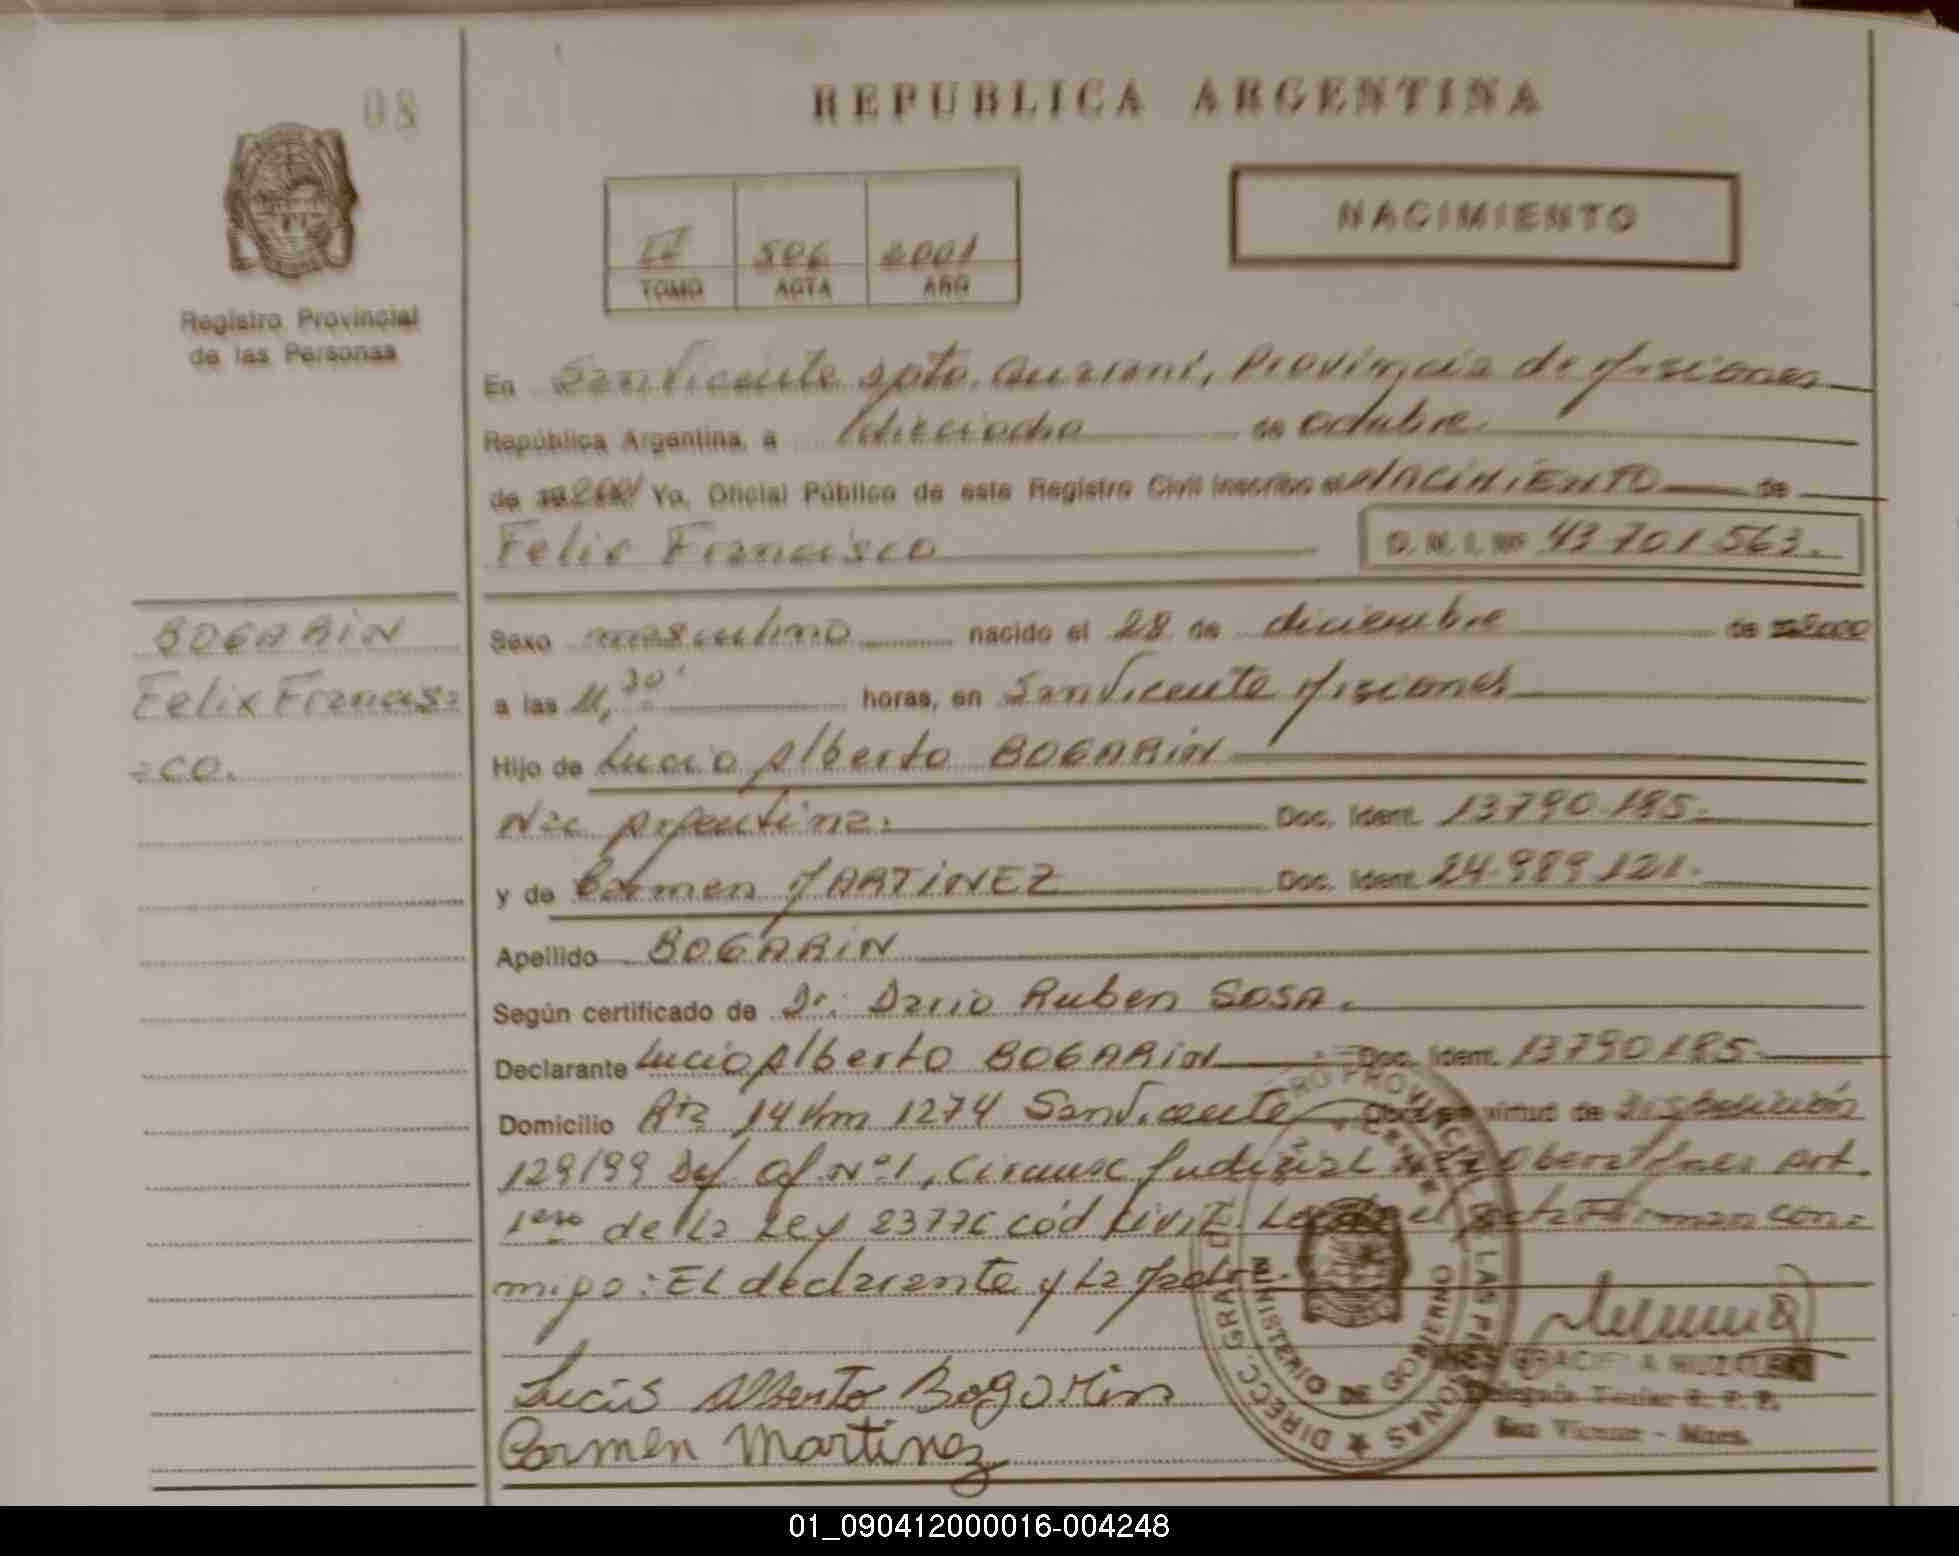 08
REPUBLICA ARGENTINA
NACIMIENTO
II 506 2001
TOMO ACTA AÑO
Registro Provincial
de las Personas
En San Vicente Dpto. Guaraní, Provincia de Misiones
República Argentina, a dieciocho de octubre
de 2001 Yo, Oficial Público de este Registro Civil inscribo el NACIMIENTO de
Felix Francisco D. N. I. Nº 43701563.
BOGARIN
Felix Francis=
=co.
Sexo masculino nacido el 28 de diciembre de 2000
a las 11,30' horas, en San Vicente Misiones
Hijo de Lucio Alberto BOGARIN
Nac Argentina. Doc. Ident. 13790.185.
y de Carmen MARTINEZ Doc. Ident. 24.989.121.
Apellido BOGARIN
Según certificado de Dr. Dario Ruben SOSA.
Declarante Lucio Alberto BOGARIN Doc. Ident. 13790185
Domicilio Rta 14 Km 1274 San Vicente Obra en virtud de Disposición
129/99 Def. Of. Nº 1, Circunsc Judicial Oberá Mnes Art.
1ero de la Ley 23776 cód civil. Leída el acta Firman con=
migo: EL declarante y La Madre.
Lucio Alberto Bogarin
Carmen Martinez
DIRECC. GRAL. DEL REGISTRO PROVINCIAL DE LAS PERSONAS
MINISTERIO DE GOBIERNO
Delegada Titular R. P. P.
San Vicente - Mnes.
01_090412000016-004248